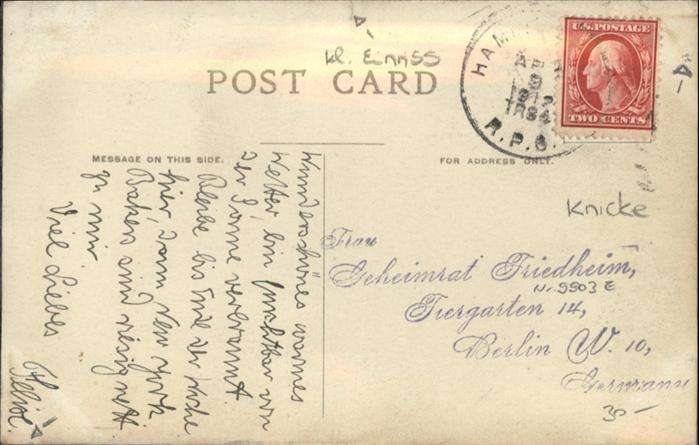 Kl. Einriss
POST CARD
U.S. POSTAGE
TWO CENTS
HAM
1912
TR84
R.P.O.
MESSAGE ON THIS SIDE.
FOR ADDRESS ONLY.
Knicke
Wunderschönes warmes
Wetter, bin furchtbar von
der Sonne verbrannt.
Bleibe bis Ende der Woche
hier, dann New York
Bakers sind riesig nett
zu mir.
Viel Liebes
Frau
Geheimrat Friedheim,
Nr. 5903 E
Tiergarten 14,
Berlin W. 10,
Germany
30-